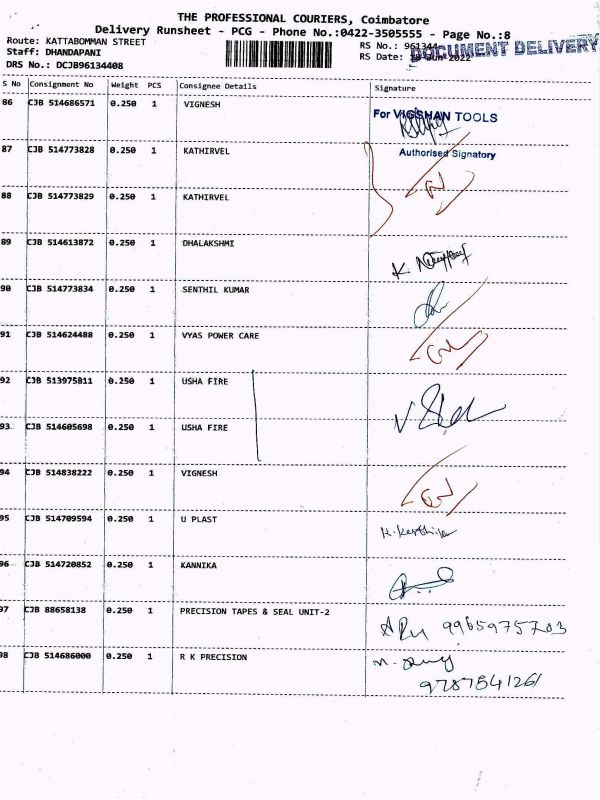 THE PROFESSIONAL COURIERS, Coimbatore
Delivery Runsheet - PCG - Phone No.:0422-3505555 - Page No.:8
Route: KATTABOMMAN STREET RS No.: 961344
DOCUMENT DELIVERY
Staff: DHANDAPANI RS Date: Jun 2022
DRS No.: DCJB96134408
S No Consignment No Weight PCS Consignee Details Signature
86 CJB 514686571 0.250 1 VIGNESH
For VIGSHAN TOOLS
Authorised Signatory
87 CJB 514773828 0.250 1 KATHIRVEL
88 CJB 514773829 0.250 1 KATHIRVEL
89 CJB 514613872 0.250 1 DHALAKSHMI K.
90 CJB 514773834 0.250 1 SENTHIL KUMAR
91 CJB 514624488 0.250 1 VYAS POWER CARE
92 CJB 513975811 0.250 1 USHA FIRE
93 CJB 514605698 0.250 1 USHA FIRE
94 CJB 514838222 0.250 1 VIGNESH
95 CJB 514709594 0.250 1 U PLAST
96 CJB 514720852 0.250 1 KANNIKA
97 CJB 88658138 0.250 1 PRECISION TAPES & SEAL UNIT-2 9965975703
98 CJB 514686000 0.250 1 R K PRECISION M.
9787541261